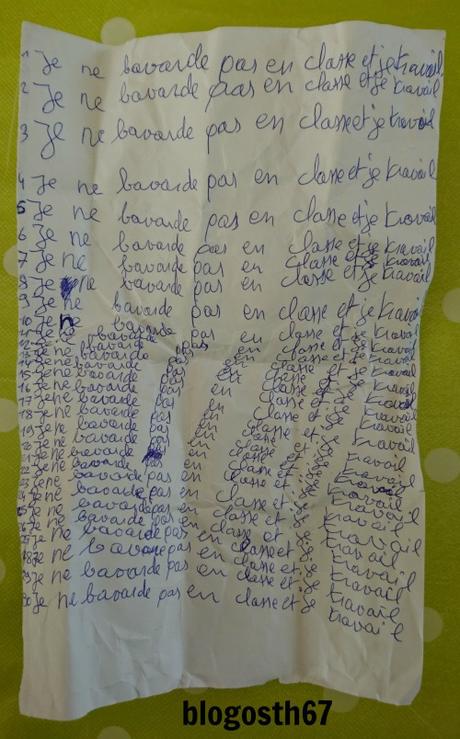 1 Je ne bavarde pas en classe et je travail
2 Je ne bavarde pas en classe et je travail
3 Je ne bavarde pas en classe et je travail
4 Je ne bavarde pas en classe et je travail
5 Je ne bavarde pas en classe et je travail
6 Je ne bavarde pas en classe et je travail
7 Je ne bavarde pas en classe et je travail
8 Je ne bavarde pas en classe et je travail
9 Je ne bavarde pas en classe et je travail
10 Je ne bavarde pas en classe et je travail
11 Je ne bavarde pas en classe et je travail
12 Je ne bavarde pas en classe et je travail
13 Je ne bavarde pas en classe et je travail
14 Je ne bavarde pas en classe et je travail
15 Je ne bavarde pas en classe et je travail
16 Je ne bavarde pas en classe et je travail
17 Je ne bavarde pas en classe et je travail
18 Je ne bavarde pas en classe et je travail
19 Je ne bavarde pas en classe et je travail
20 Je ne bavarde pas en classe et je travail
21 Je ne bavarde pas en classe et je travail
22 Je ne bavarde pas en classe et je travail
23 Je ne bavarde pas en classe et je travail
24 Je ne bavarde pas en classe et je travail
25 Je ne bavarde pas en classe et je travail
26 Je ne bavarde pas en classe et je travail
27 Je ne bavarde pas en classe et je travail
28 Je ne bavarde pas en classe et je travail
29 Je ne bavarde pas en classe et je travail
30 Je ne bavarde pas en classe et je travail
blogosth67